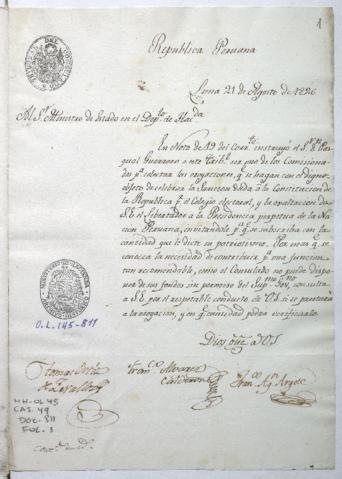 1
Republica Peruana
Lima 21 de Agosto de 1826
Al Sr. Ministro de Estado en el Dpto. de Hacda
En Nota de 19 del Corrte. instruyó el Sr. Dn. Pas
qual Guerrero a este Tribl. ser uno de los Comisiona
dos pa. colectar las erogaciones, qe. se hagan con el digno
objeto de celebrar la Sancion dada a la Constitucion de
la Republica pr. el Colegio electoral, y la exaltacion de
S.E. el Libertador a la Presidencia perpetua de la Na
cion Peruana, invitandolo pa. qe. se subscriba con la
cantidad que le dicte su patriotismo. Por mas qe. se
conozca la necesidad de contribuir pa. una funcion
tan recomendable, como el Consulado no puede dispo
ner de sus fondos sin permiso del Supmo. Gov. consulta
a S.E. por el respetable conducto de V.S. si se prestará
a la erogacion, y en qe. cantidad podra verificarlo.
Dios gue. a V.S.
O.L. 145-811
Franco. Alvarez
Calderon
MH-OL 145
CAJ. 49
DOC. 811
FOL. 1